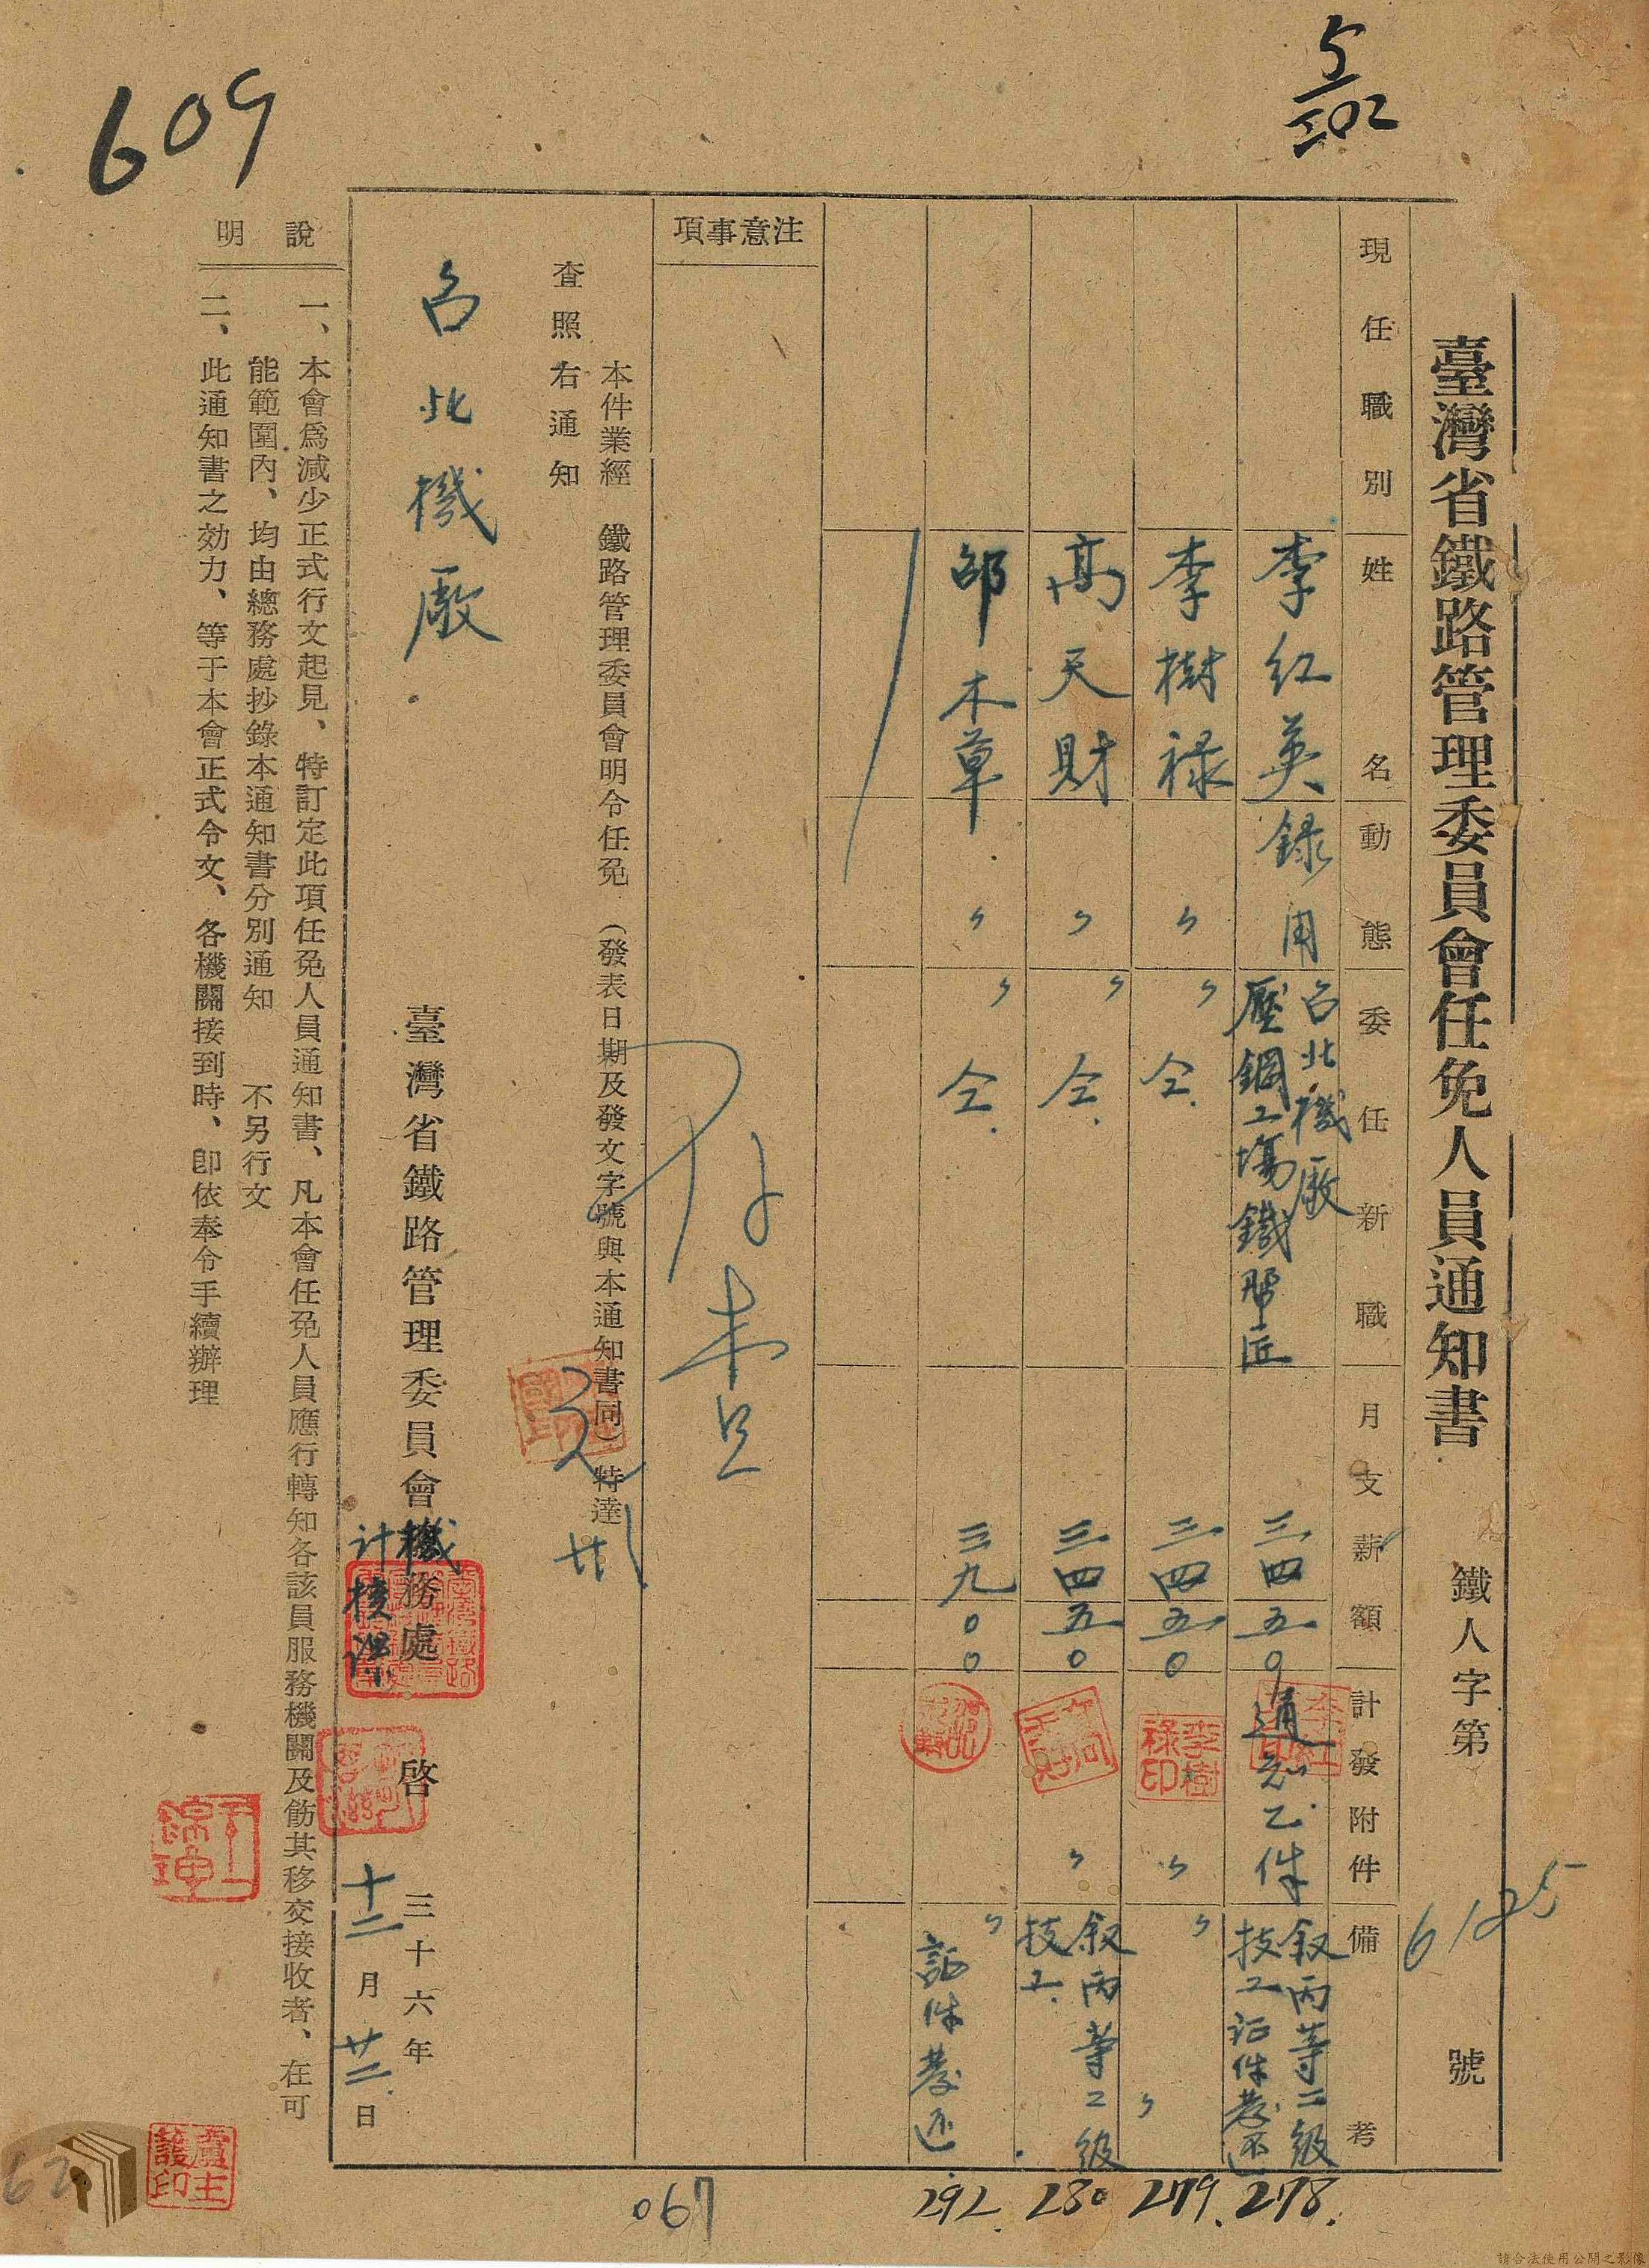 臺灣省鐵路管理委員會任免人員通知書
鐵人字第 6125 號
現任職別 姓名 動態 委任新職 月支薪額 計發附件 備考
李紅英 錄用 台北機廠
壓鋼工場鐵器匠 三四五〇 通知乙件 叙丙等二級
技工証件發还
278.
李樹祿 〃 〃 仝. 三四五〇 〃 〃 〃
279.
高天財 〃 〃 仝. 三四五〇 〃 叙丙等二級
技工.
280
邰木草 〃 〃 仝. 三九〇〇 〃
証件發还
292.
注意事項
本件業經 鐵路管理委員會明令任免 (發表日期及發文字號與本通知書同) 特達
查照右通知
台北機廠
臺灣省鐵路管理委員會機務處 啓 三十六年
計核課 十二月廿二日
說明
一、本會爲減少正式行文起見、特訂定此項任免人員通知書、凡本會任免人員應行轉知各該員服務機關及飭其移交接收者、在可
能範圍內、均由總務處抄錄本通知書分別通知 不另行文
二、此通知書之効力、等于本會正式令文、各機關接到時、卽依奉令手續辦理
609
5/302
067
62
李樹祿印
盧主護印
請合法使用公開之影像